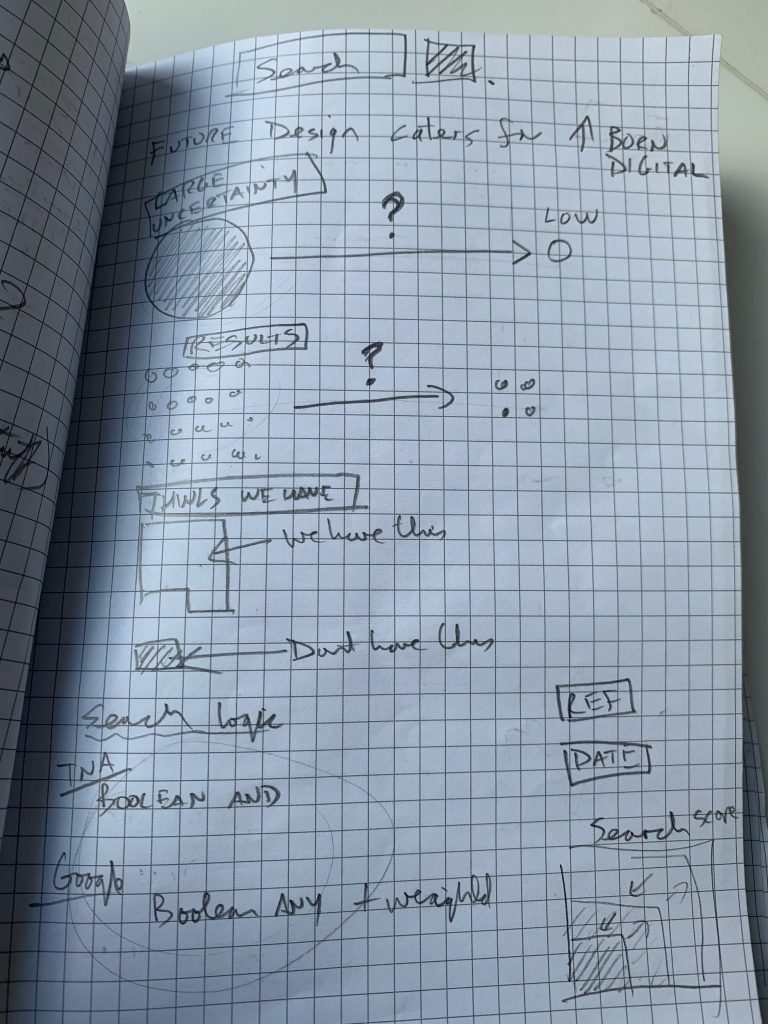 Search
FUTURE Design caters for ↑ BORN
DIGITAL
LARGE
UNCERTAINTY
?
LOW
RESULTS
?
THINGS WE HAVE
We have this
Dont have this
Search Logic
REF
TNA
DATE
BOOLEAN AND
Search score
Google
Boolean ANY + weighted